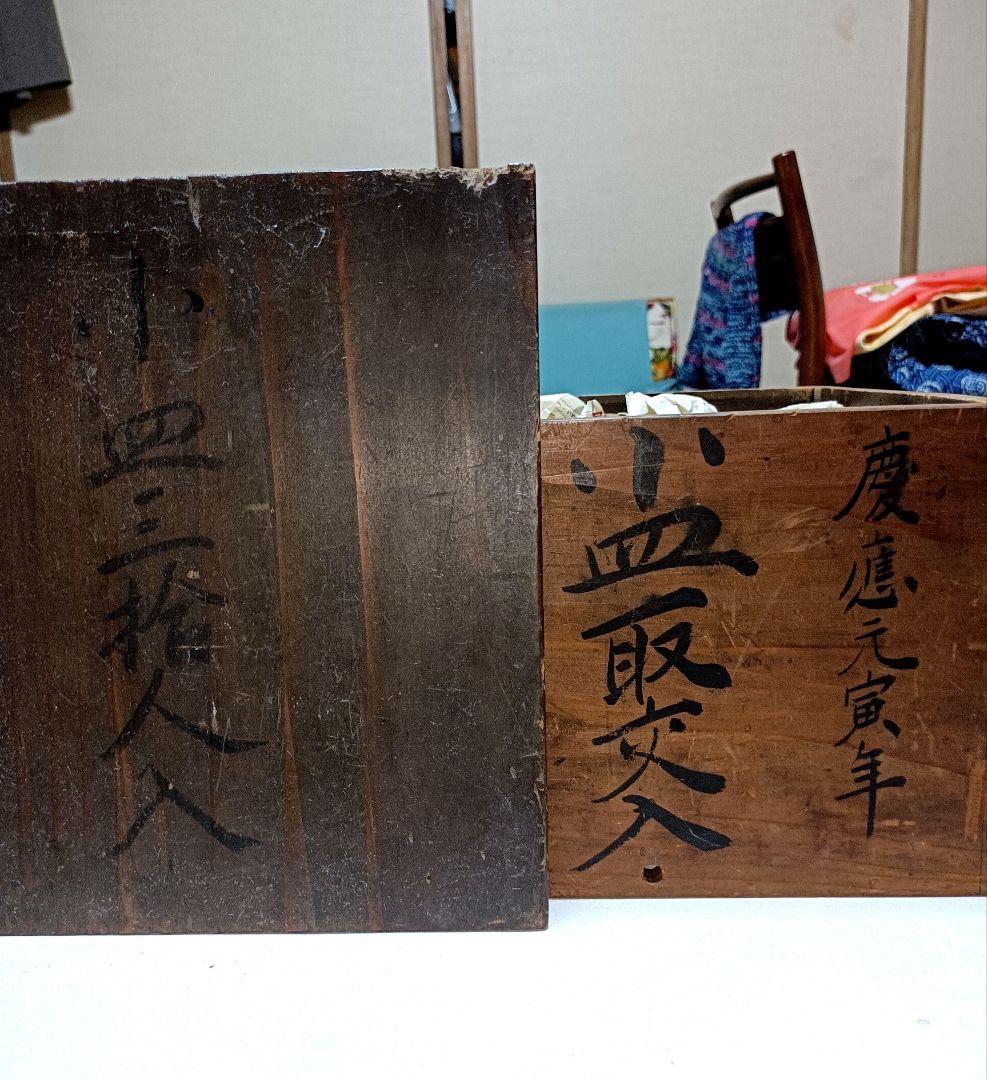 慶應元寅年
小皿取交入
小皿三拾人入